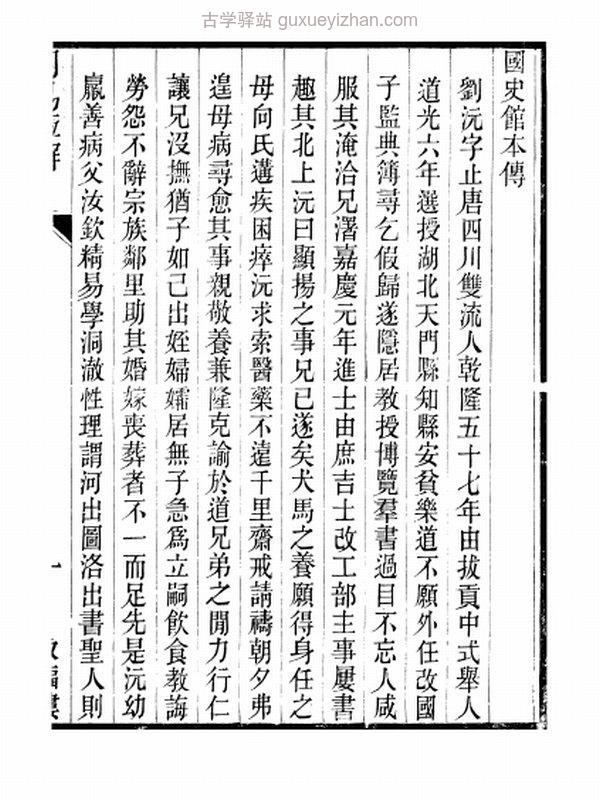 古学驿站 guxueyizhan.com
國史館本傳
劉沅字止唐四川雙流人乾隆五十七年由拔貢中式舉人
道光六年選授湖北天門縣知縣安貧樂道不願外任改國
子監典簿尋乞假歸遂隱居教授博覽羣書過目不忘人咸
服其淹洽兄濖嘉慶元年進士由庶吉士改工部主事屢書
趣其北上沅曰顯揚之事兄已遂矣犬馬之養願得身任之
母向氏遘疾困瘁沅求索醫藥不遠千里齋戒請禱朝夕弗
遑母病尋愈其事親敬養兼隆克諭於道兄弟之閒力行仁
讓兄沒撫猶子如己出姪婦孀居無子急爲立嗣飲食教誨
勞怨不辭宗族鄰里助其婚嫁喪葬者不一而足先是沅幼
羸善病父汝欽精易學洞澈性理謂河出圖洛出書聖人則
一